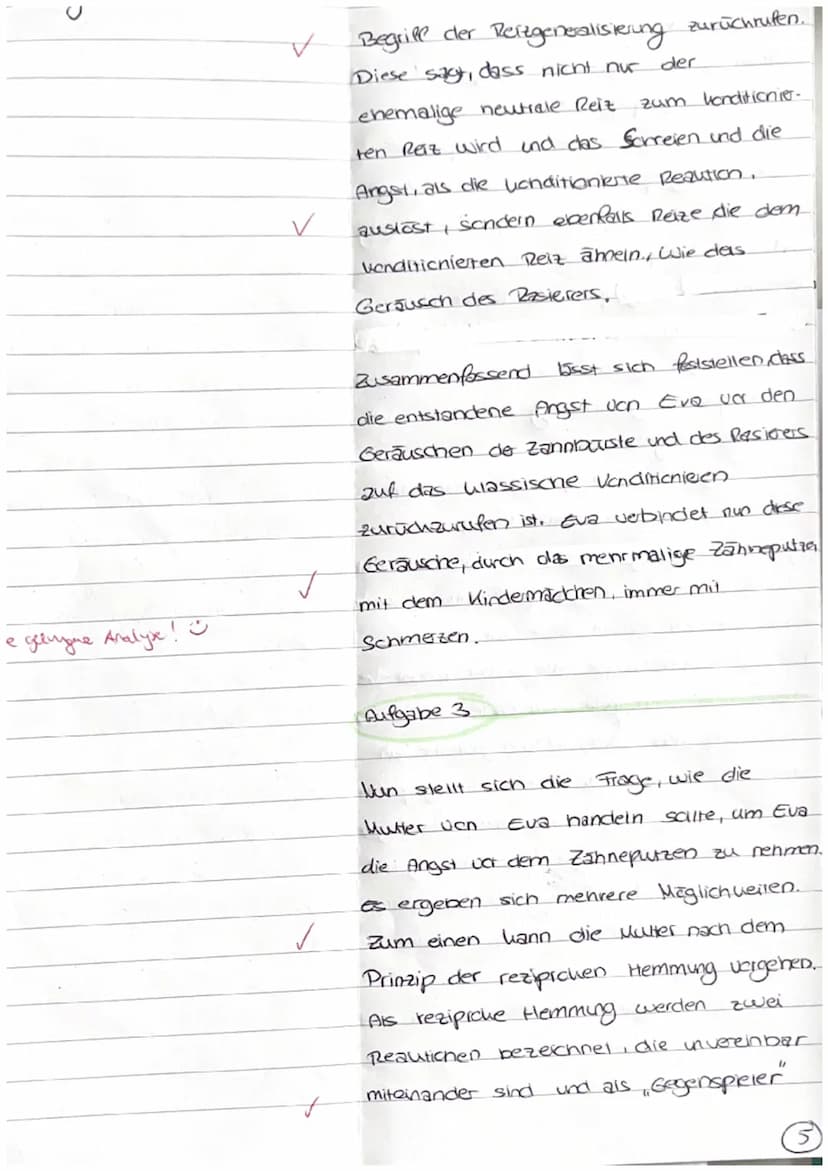 Begriff der Reizgeneralisierung zurückrufen.
Diese sagt, dass nicht nur der
ehemalige neutrale Reiz zum konditionier-
ten Reiz wird und das Schreien und die
Angst, als die konditionierte Reaktion,
auslöst, sondern ebenfalls Reize die dem
konditionierten Reiz ähneln, wie das
Geräusch des Rasierers.
Zusammenfassend lässt sich feststellen, dass
die entstandene Angst von Eva vor den
Geräuschen der Zahnbürste und des Rasierers
auf das klassische Konditionieren
zurückzurufen ist. Eva verbindet nun diese
Geräusche, durch das mehrmalige Zähneputzen
mit dem Kindermädchen, immer mit
e gelungne Analyse! :)
Schmerzen.
Aufgabe 3
Nun stellt sich die Frage, wie die
Mutter von Eva handeln sollte, um Eva
die Angst vor dem Zähneputzen zu nehmen.
es ergeben sich mehrere Möglichkeiten.
Zum einen kann die Mutter nach dem
Prinzip der reziproken Hemmung vorgehen.
Als reziproke Hemmung werden zwei
Reaktionen bezeichnet, die unvereinbar
miteinander sind und als „Gegenspieler"
5